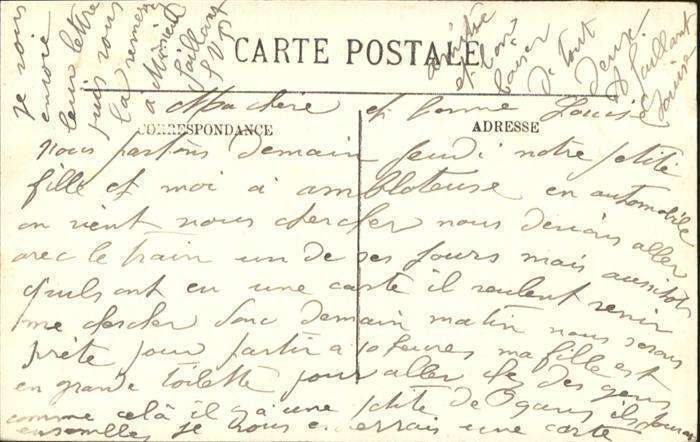 je vous
envoie
leur lettre
puis vous
la remez
à Monsieur
faillant
S.V.P.
CARTE POSTALE
et bon
baiser
De tout
Deux
A faillant
Louise
Ma chère et bonne Louise
CORRESPONDANCE
ADRESSE
nous partons demain Jeudi notre petite
fille et moi à ambloteuse en automobile
on vient nous chercher nous devions aller
avec le train un de ses jours mais aussitot
qu'ils ont eu une carte il veulent venir
me chercher donc demain matin nous serons
prète pour partir a 10 heures ma fille est
en grande toilette pour aller chez des gens
comme celà il y a une petite de 9 ans il
ensembles je vous enverrais une carte